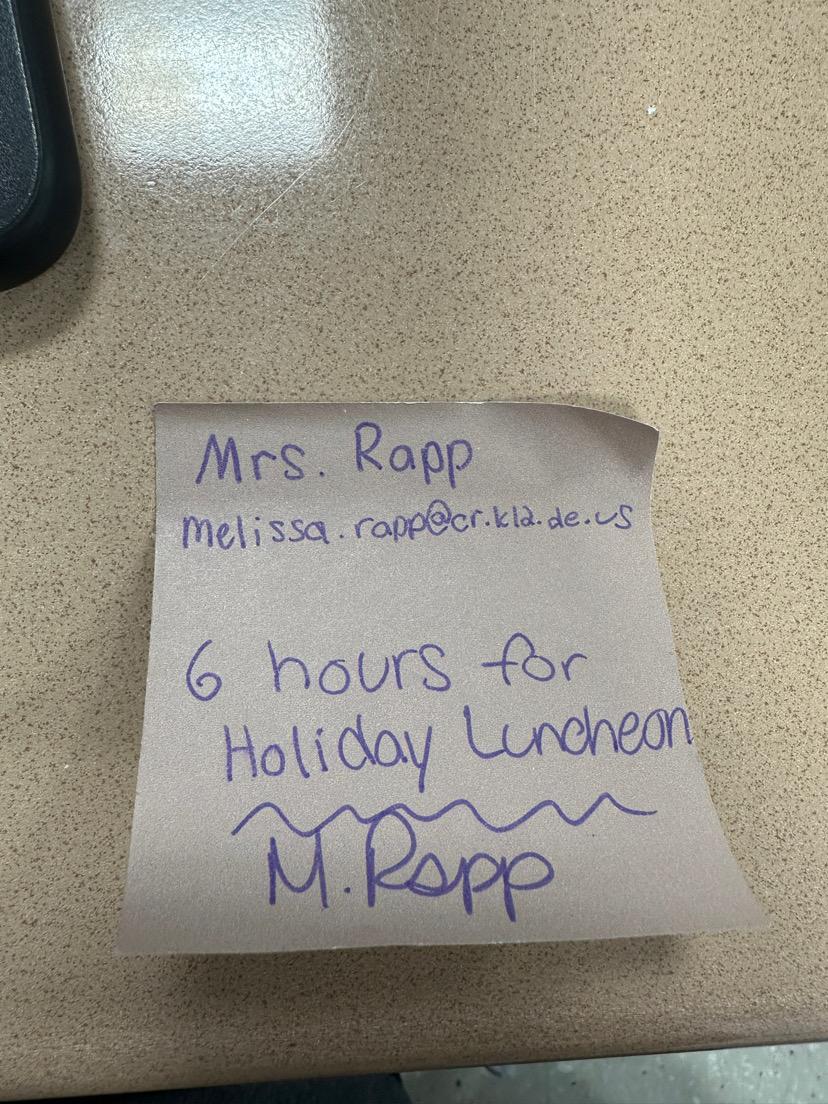 Mrs. Rapp
melissa.rapp@cr.k12.de.us
6 hours for
Holiday Luncheon
M. Rapp